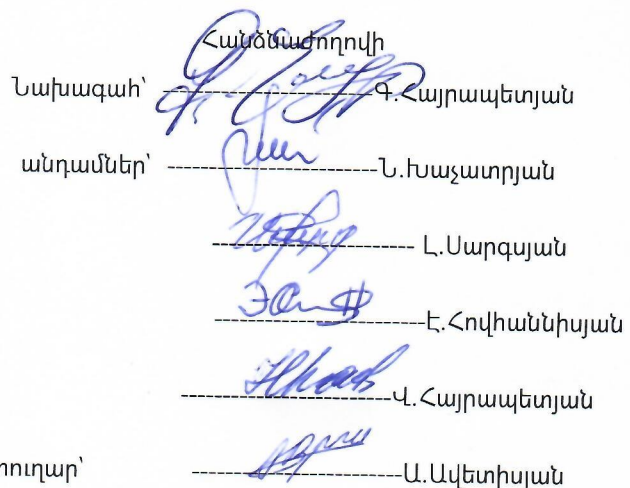 Հանձնաժողովի
Նախագահ՝ ----------------------Գ.Հայրապետյան
անդամներ՝ ----------------------Ն.Խաչատրյան
---------------------- Լ.Սարգսյան
----------------------Է.Հովհաննիսյան
----------------------Վ.Հայրապետյան
տուղար՝ ----------------------Ա.Ավետիսյան